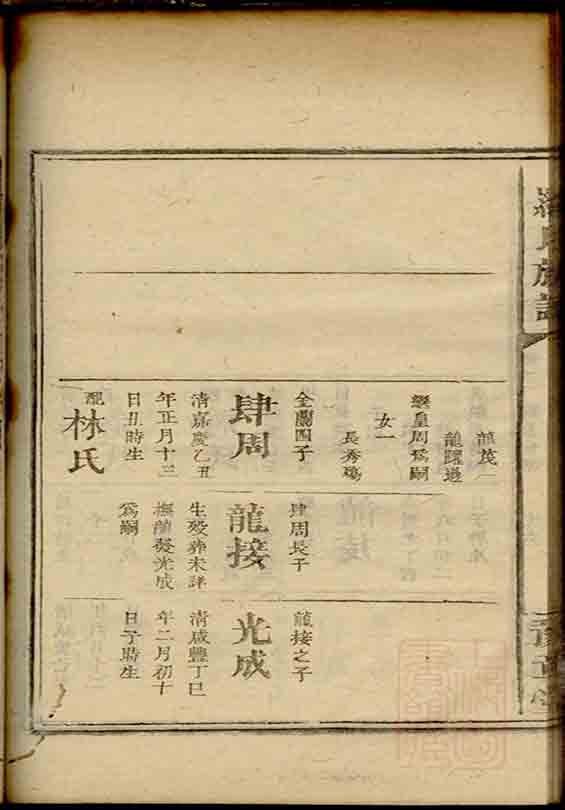 氏族譜
龍茂一
龍躍過
繼皇周爲嗣
女一
長秀鸞
全蘭四子
肆周
清嘉慶乙丑
年正月十三
日丑時生
配林氏
肆周長子
龍接
生殁葬未詳
撫龍發光成
爲嗣
龍接之子
光成
清咸豐丁巳
年二月初十
日子時生